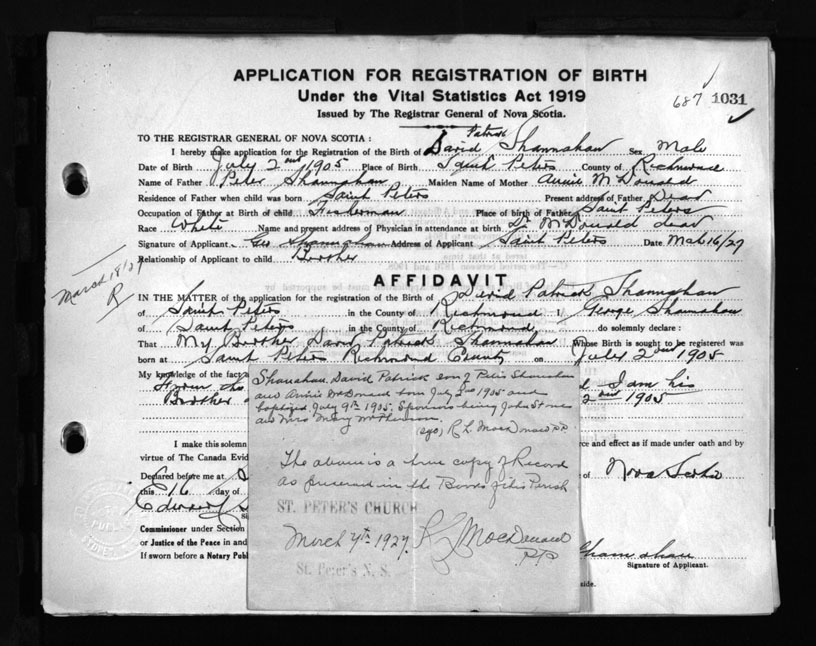 APPLICATION FOR REGISTRATION OF BIRTH
Under the Vital Statistics Act 1919
687 1031
Issued by The Registrar General of Nova Scotia.
TO THE REGISTRAR GENERAL OF NOVA SCOTIA :
Patrick
I hereby make application for the Registration of the Birth of David Shannahan Sex Male
Date of Birth July 2nd 1905 Place of Birth Saint Peters County of Richmond
Name of Father Peter Shannahan Maiden Name of Mother Annie McDonald
Residence of Father when child was born Saint Peters Present address of Father Dead
Occupation of Father at Birth of child Fisherman Place of birth of Father Saint Peters
Race White Name and present address of Physician in attendance at birth Dr McDonald dead
Signature of Applicant Geo Shannahan Address of Applicant Saint Peters Date Mch 16/27
Relationship of Applicant to child Brother
March 18/27
R
AFFIDAVIT
IN THE MATTER of the application for the registration of the Birth of David Patrick Shannahan
of Saint Peters in the County of Richmond I, George Shannahan
of Saint Peters in the County of Richmond do solemnly declare :
That My Brother David Patrick Shannahan Whose Birth is sought to be registered was
born at Saint Peters Richmond County on July 2nd 1905
My knowledge of the fac
From the I am his
Brother 2nd 1905
Shanahan, David Patrick son of Peter Shanahan
and Annie McDonald born July 2nd 1905 and
baptized July 9th 1905. Sponsors being John Stone
and Mrs Mary
(sgd) R. L. MacDonald P.P.
The above is a true copy of Record
as preserved in the Books of this Parish
ST. PETER'S CHURCH
March 4th 1927. R L MacDonald
P.P.
St. Peter's N. S.
I make this solemn rce and effect as if made under oath and by
virtue of The Canada Evid
Declared before me at of Nova Scotia
this 16 day of
Edward
Commissioner under Section
or Justice of the Peace in and Shannahan
If sworn before a Notary Publ Signature of Applicant.
side.